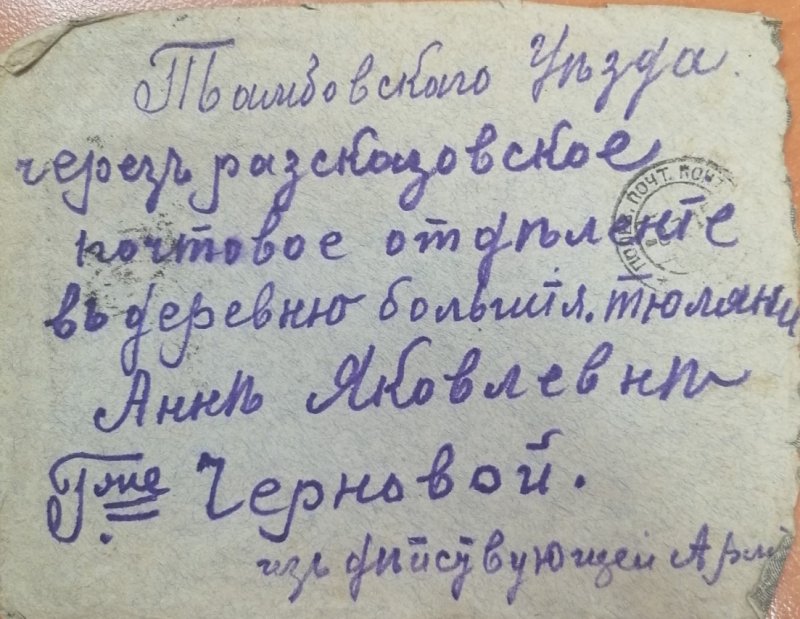 Тамбовскаго Уѣзда
черезъ разсказовское
почтовое отдѣленіе
въ деревню большія. тюляни
Аннѣ Яковлевнѣ
Гже Черновой.
изъ дѣйсувующей Арми
ПОЧТ. КОНТ